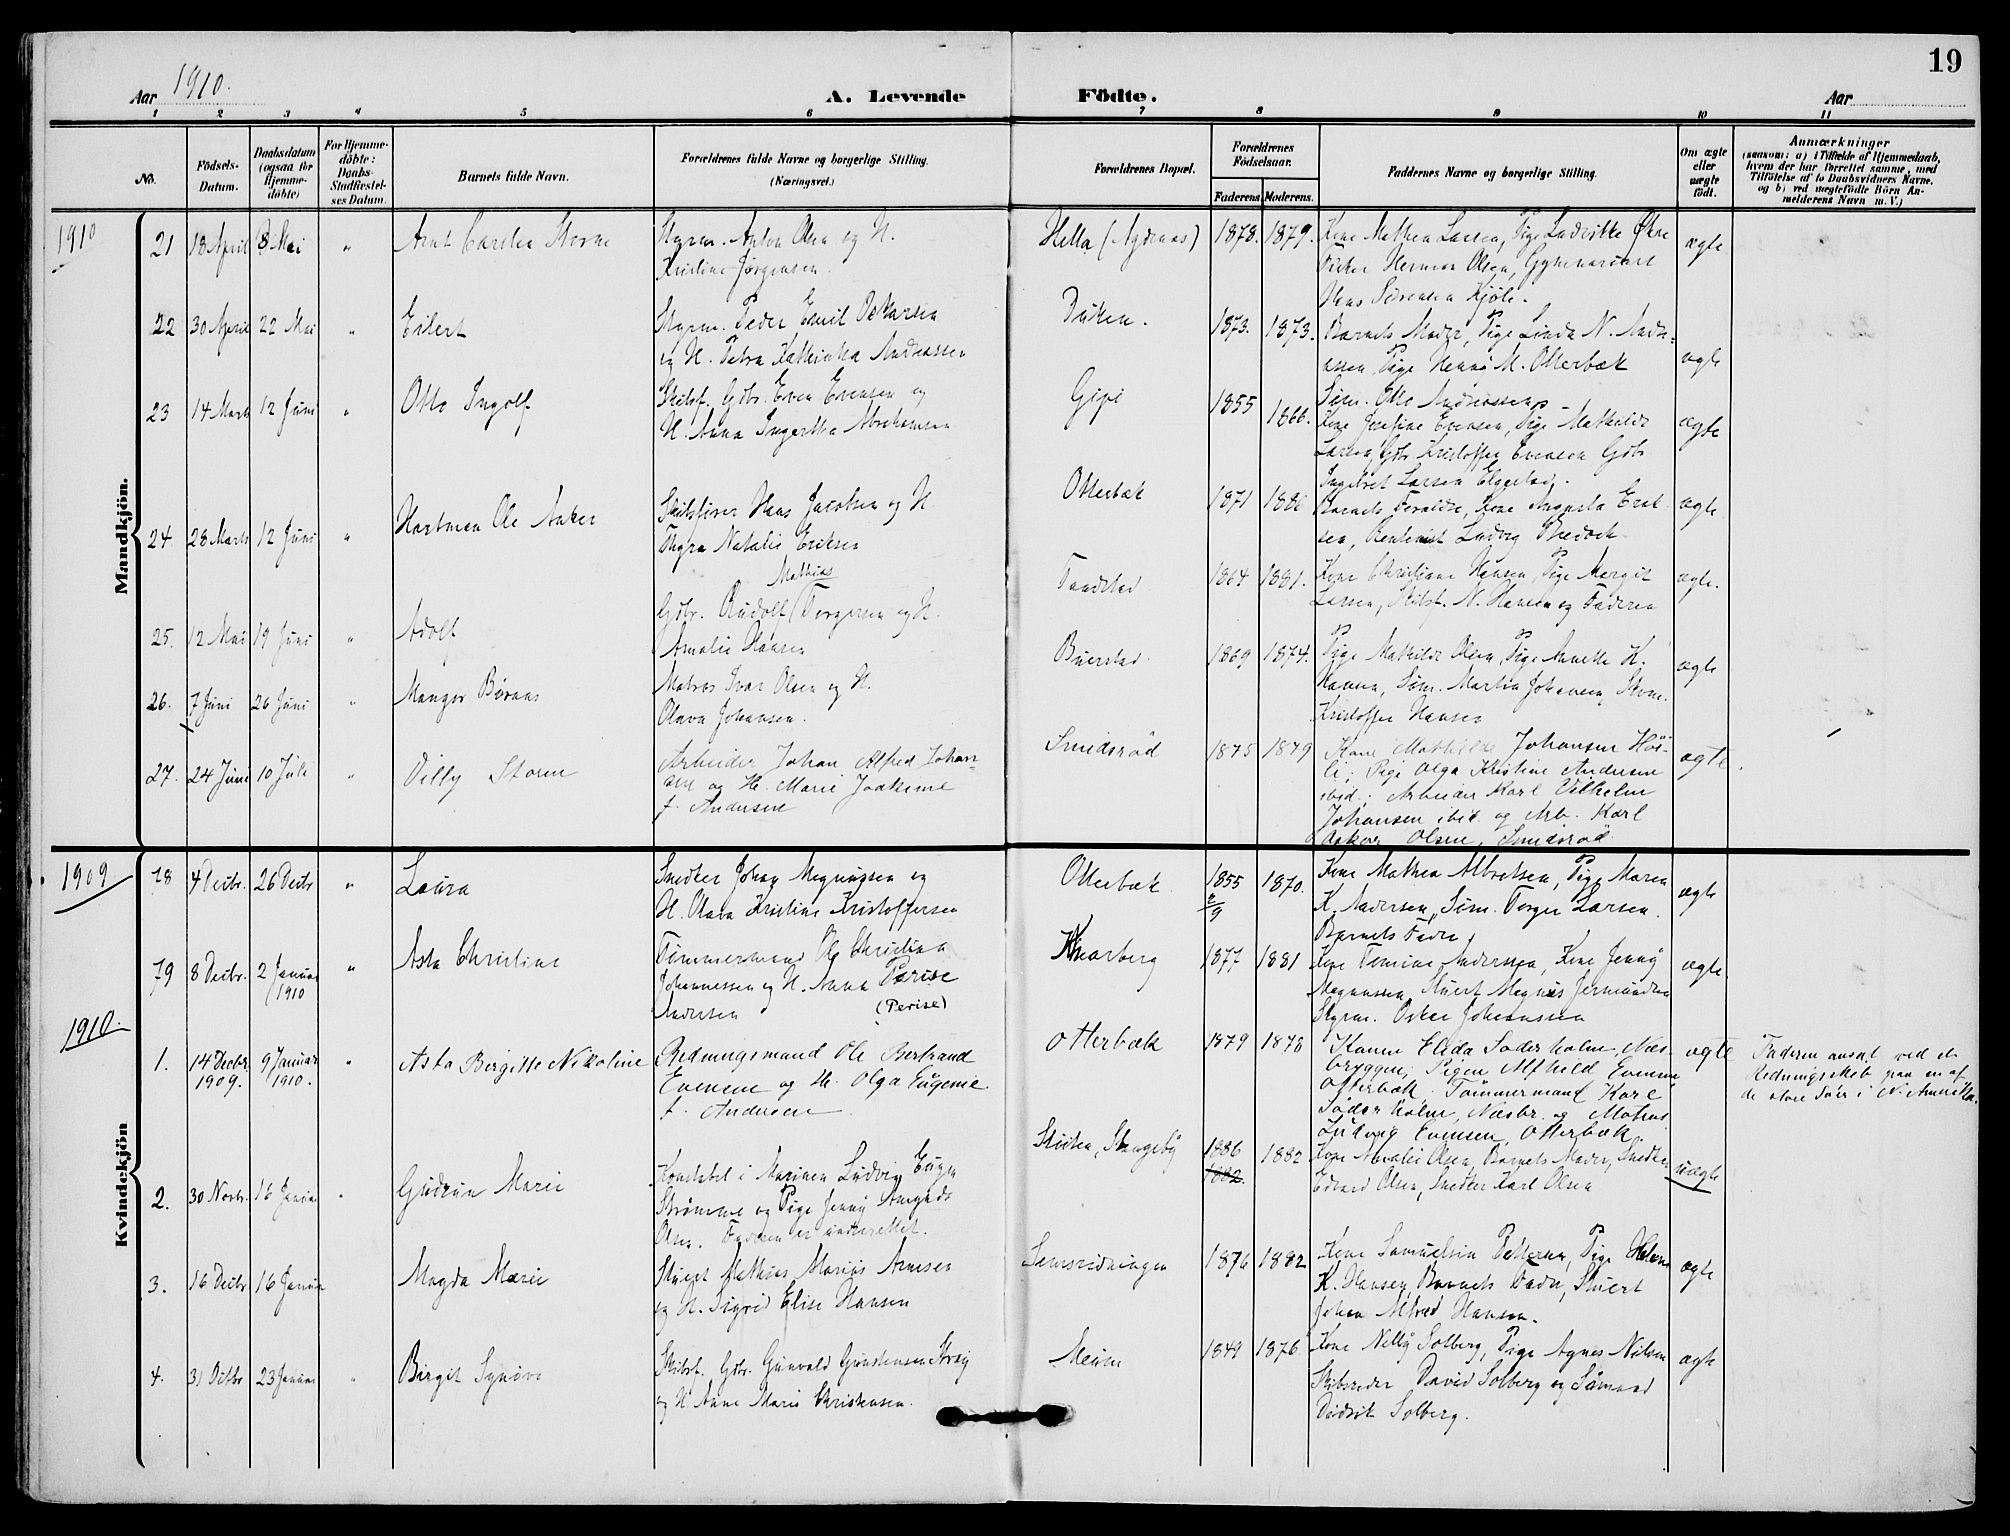 19
Aar 1910.
A. Levende Födte.
Aar
1 2 3 4 5 6 7 8 9 10 11
No.
Födsels-
Datum.
Daabsdatum
(ogsaa for
Hjemme-
döbte)
For Hjemme-
döbte:
Daabs-
Stadfæstel-
ses Datum.
Barnets fulde Navn.
Forældrenes fulde Navne og borgerlige Stilling.
(Næringsvei.)
Forældrenes Bopæl.
Forældrenes
Födselsaar.
Faderens. Moderens.
Faddernes Navne og borgerlige Stilling.
Om ægte
eller
uægte
födt.
Anmærkninger
(saasom: a) i Tilfælde af Hjemmedaab,
hvem der har forrettet samme, med
Tilföielse af to Daabsvidners Navne,
og b) ved uægtefödte Börn An-
melderens Navn m. V.)
Mandkjön.
1910
21 18 April 8 Mai " Arnt Carelen
Styrm. Anton Olsen og H.
Kristine Jørgensen.
Hella (Agdenæs) 1878. 1879.
Kone Mathea Larsen, Pige Ludvikke
Fisker Herman Olsen,
Hans Sørensen Kjøle.
ægte
22 30 April 22 Mai " Eilert
Styrm. Peder Emil Oskarsen
og H. Petra Kathinka Andreassen
Duken. 1873. 1873.
Barnets Moder, Pige Linda N. Andre-
assen, Pige M. Otterbæk
Søm. Otto Andreassen
ægte
23 14 Marts 12 Juni " Otto Ingolf
Skibsf. Gdbr. Even Evensen og
H. Anna Ingertha Abrahamsen
Gipø 1855 1866.
Kone Josefine Evensen, Pige Mathilde
Larsen, Gdbr. Kristoffer Evensen Gdbr.
Ingebret Larsen
ægte
24. 28 Marts 12 Juni " Hartman Ole Anker
Skibsfører Hans Jacobsen og H.
Thyra Natalie Eriksen
Otterbæk 1871 1886
Barnets Forældre, Kone Augusta Erik-
sen, Ludvig
ægte
25. 12 Mai 19 Juni " Adolf
Mathias
Gdbr. Rudolf Torgersen og H.
Amalie Hansen
1864 1881.
Kone Christiane Hansen, Pige Margit
Larsen, Skibsf. N. Hansen og Faderen
ægte.
26. 7 Juni 26 Juni " Mangor
Matros Ivar Olsen og H.
Olava Johansen.
Buerstad 1869 1874.
Pige Mathilde Olsen, Pige Anette K.
Hansen, Søm. Martin Johansen,
Kristoffer Hansen
ægte
27. 24 Juni 10 Juli " Villy Storm
Arbeider Johan Alfred Johan-
sen og H. Marie Joakime
f. Andersen
Smidsrød 1875 1879
Kone Mathilde Johansen Høi-
li; Pige Olga Kristine Andersen
ibid.; Arbeider Karl Vilhelm
Johansen ibid og Arb. Karl
Oskar Olsen, Smidsrød
ægte.
Kvindekjön
1909
18 4 Decbr. 26 Decbr " Laura
Snedker Johan Magnussen og
H. Olava Kristine Kristoffersen
Otterbæk 1855 2/9 1870.
Kone Mathea Albretsen, Pige Maren
K. Andersen, Søm. Torger Larsen.
Barnets Fader.
ægte
19 8 Decbr. 2 Januar 1910 " Asta Christine
Tømmermand Ole Christian
Johannessen og H. Anna Perise
Andersen (Perise)
Knarberg 1877 1881
Kone Tomine Andersen, Kone Jenny
Magnussen, Stuert Magnus
Styrm. Oskar Johannssen
ægte
1910.
1. 14 Decbr. 1909. 9 Januar 1910. " Asta Birgitte Nikoline
Redningsmand Ole Bertrand
Evensen og H. Olga Eugenie
f. Andersen
Otterbæk 1879 1878
Konen Elida Söderholm, Næs-
bryggen, Pigen Alfhild Evensen
Otterbæk. Tømmermand Karl
Söderholm, Næsbr. og Matros
Ludvig Evensen, Otterbæk.
ægte
Faderen ansat ved et
Redningsskib paa en af
de store Søer i N. Amerika.
2. 30 Novbr. 16 Januar " Gudrun Marie
Konstabel i Marinen Ludvig Eugen
Strømme og Pige Jenny
Olsen. Faderen er underrettet.
1886 1882. 1882
Kone Amalie Olsen, Barnets Moder, Snedker
Edvard Olsen, Snedker Karl Olsen
uægte
3. 16 Decbr 16 Januar Magda Marie
Stuert Mathias Marius Arnesen
og H. Sigrid Elise Hansen
Semsridningen 1876 1882
Kone Samueline Pettersen, Pige Helene
K. Hansen, Barnets Fader, Stuert
Johan Alfred Hansen.
ægte
4. 31 23 Januar " Birgit Synøve
Skibsf. Gdbr. Gunvald Gundersen
og H. Anne Marie Christensen.
Meum 1849 1876
Kone Nelly Solberg, Pige Agnes Nilsen
Skibsreder David Solberg og Sømand
Didrik Solberg.
ægte